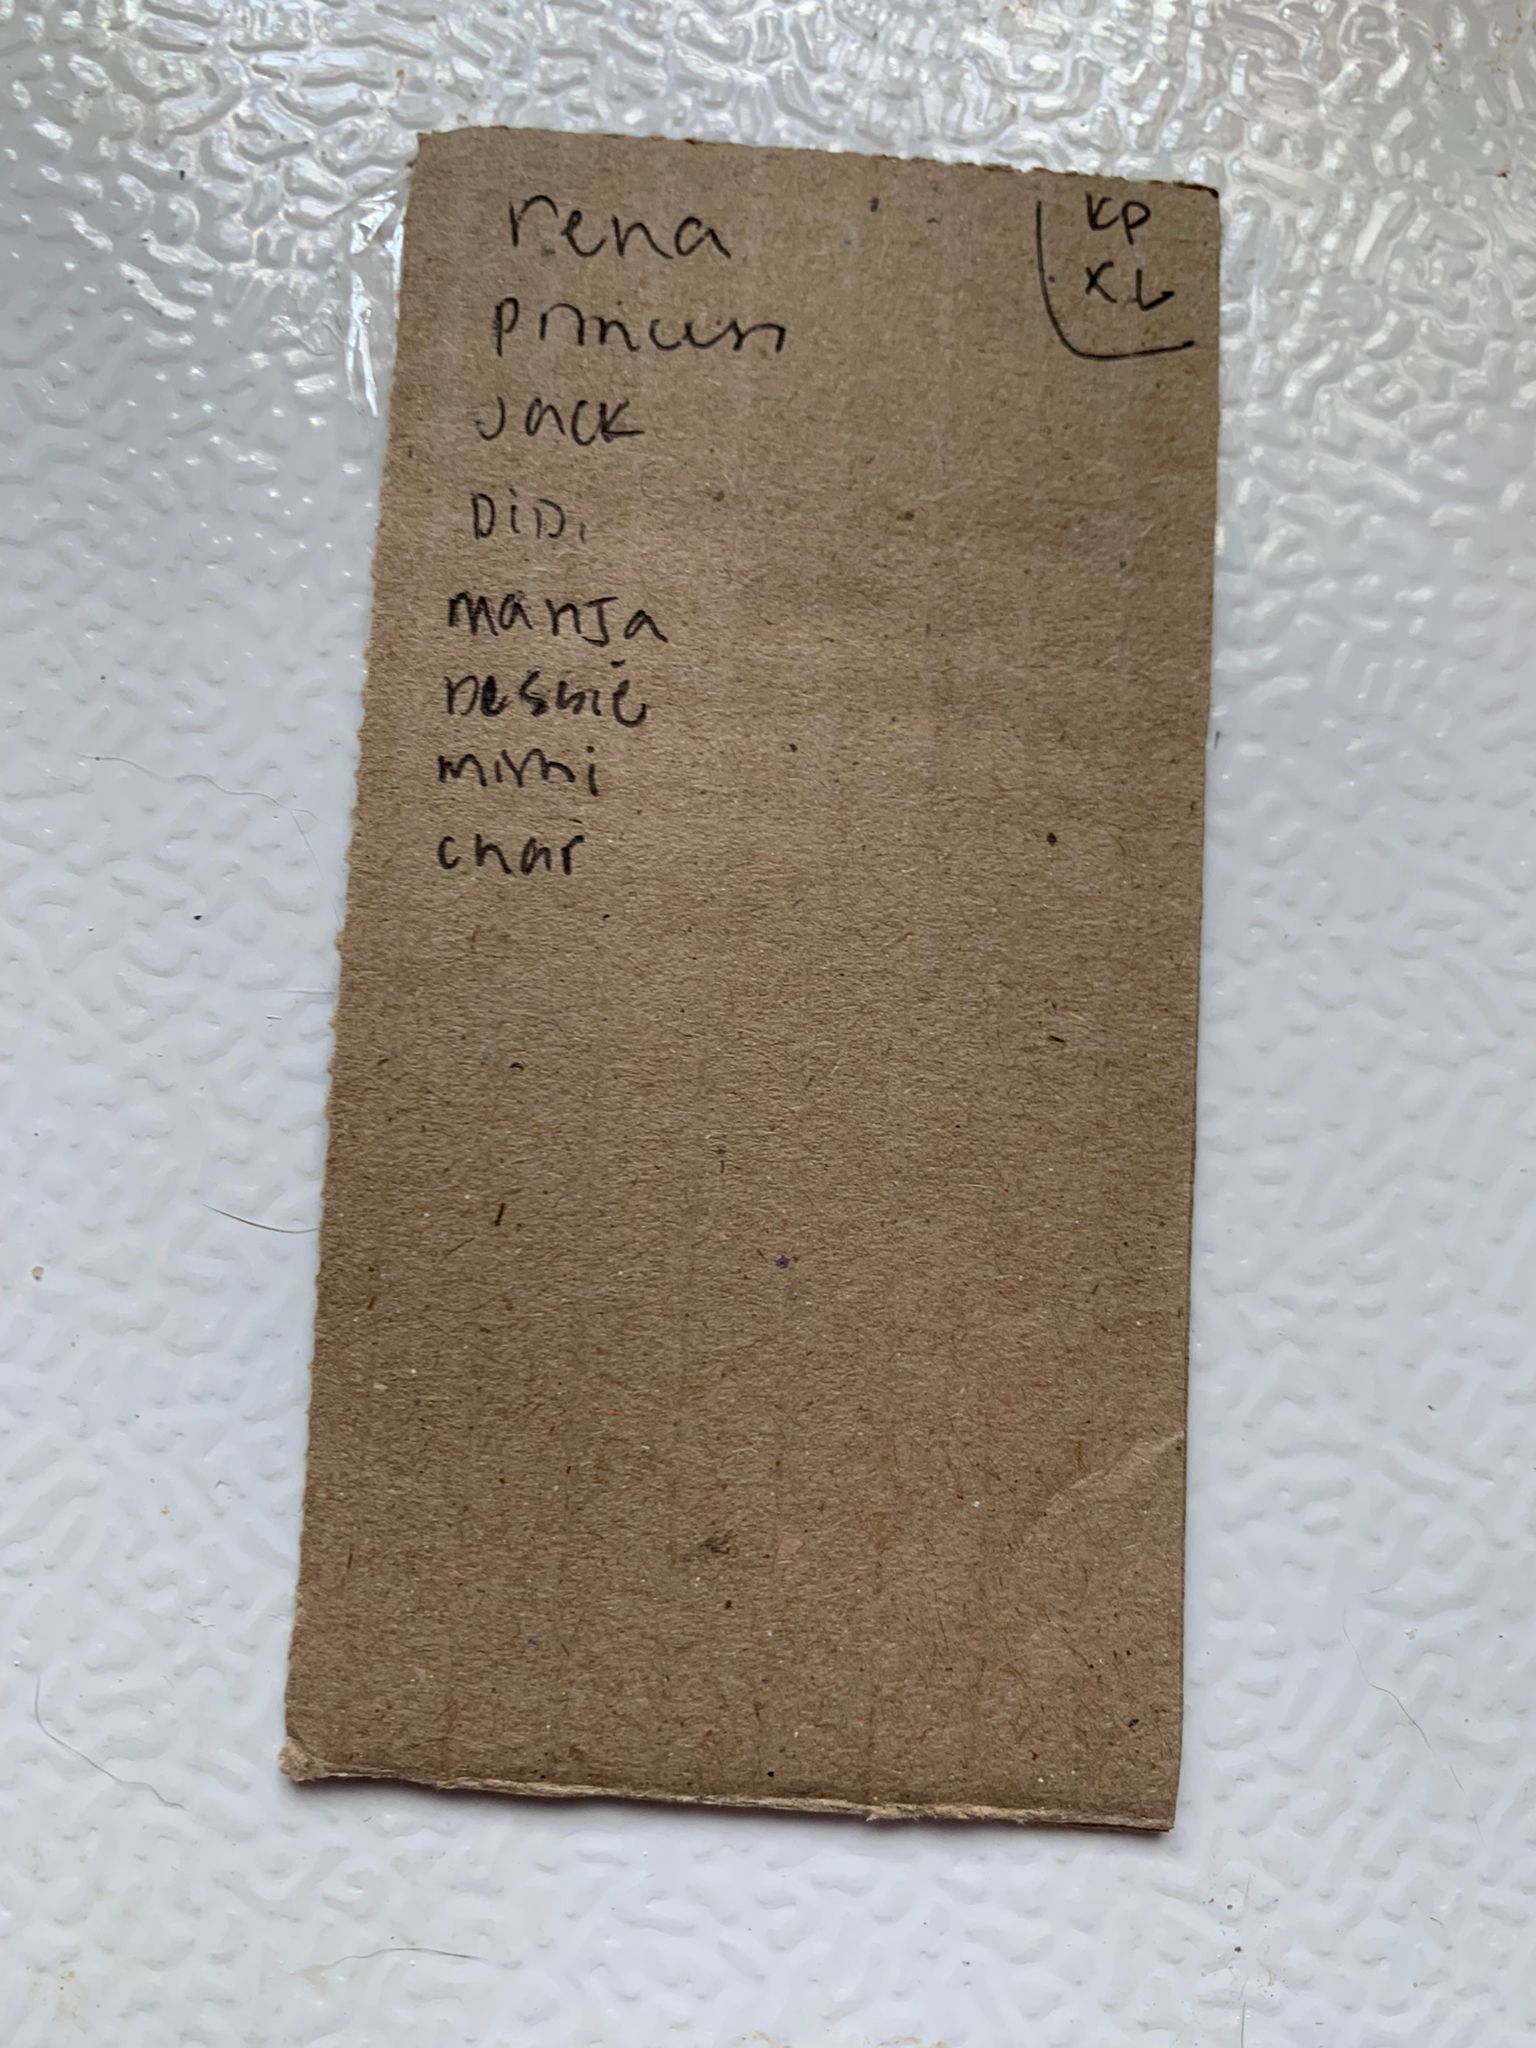 rena
KP
XL
Jack
DiDi
manJa
mimi
char